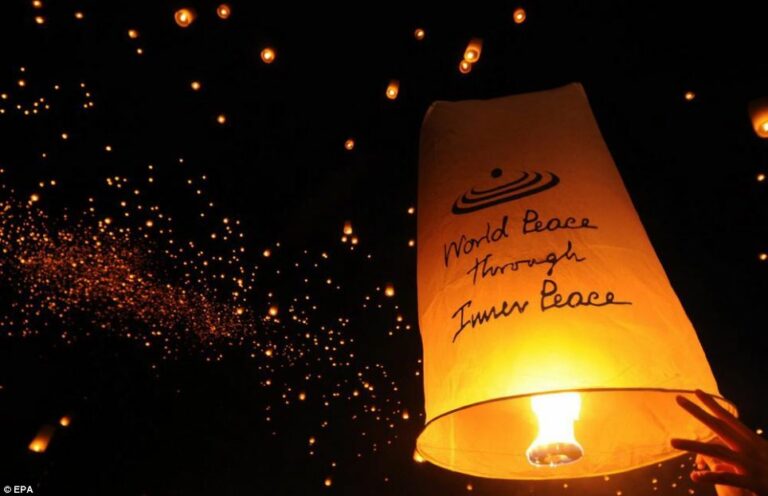 World Peace
through
Inner Peace
© EPA